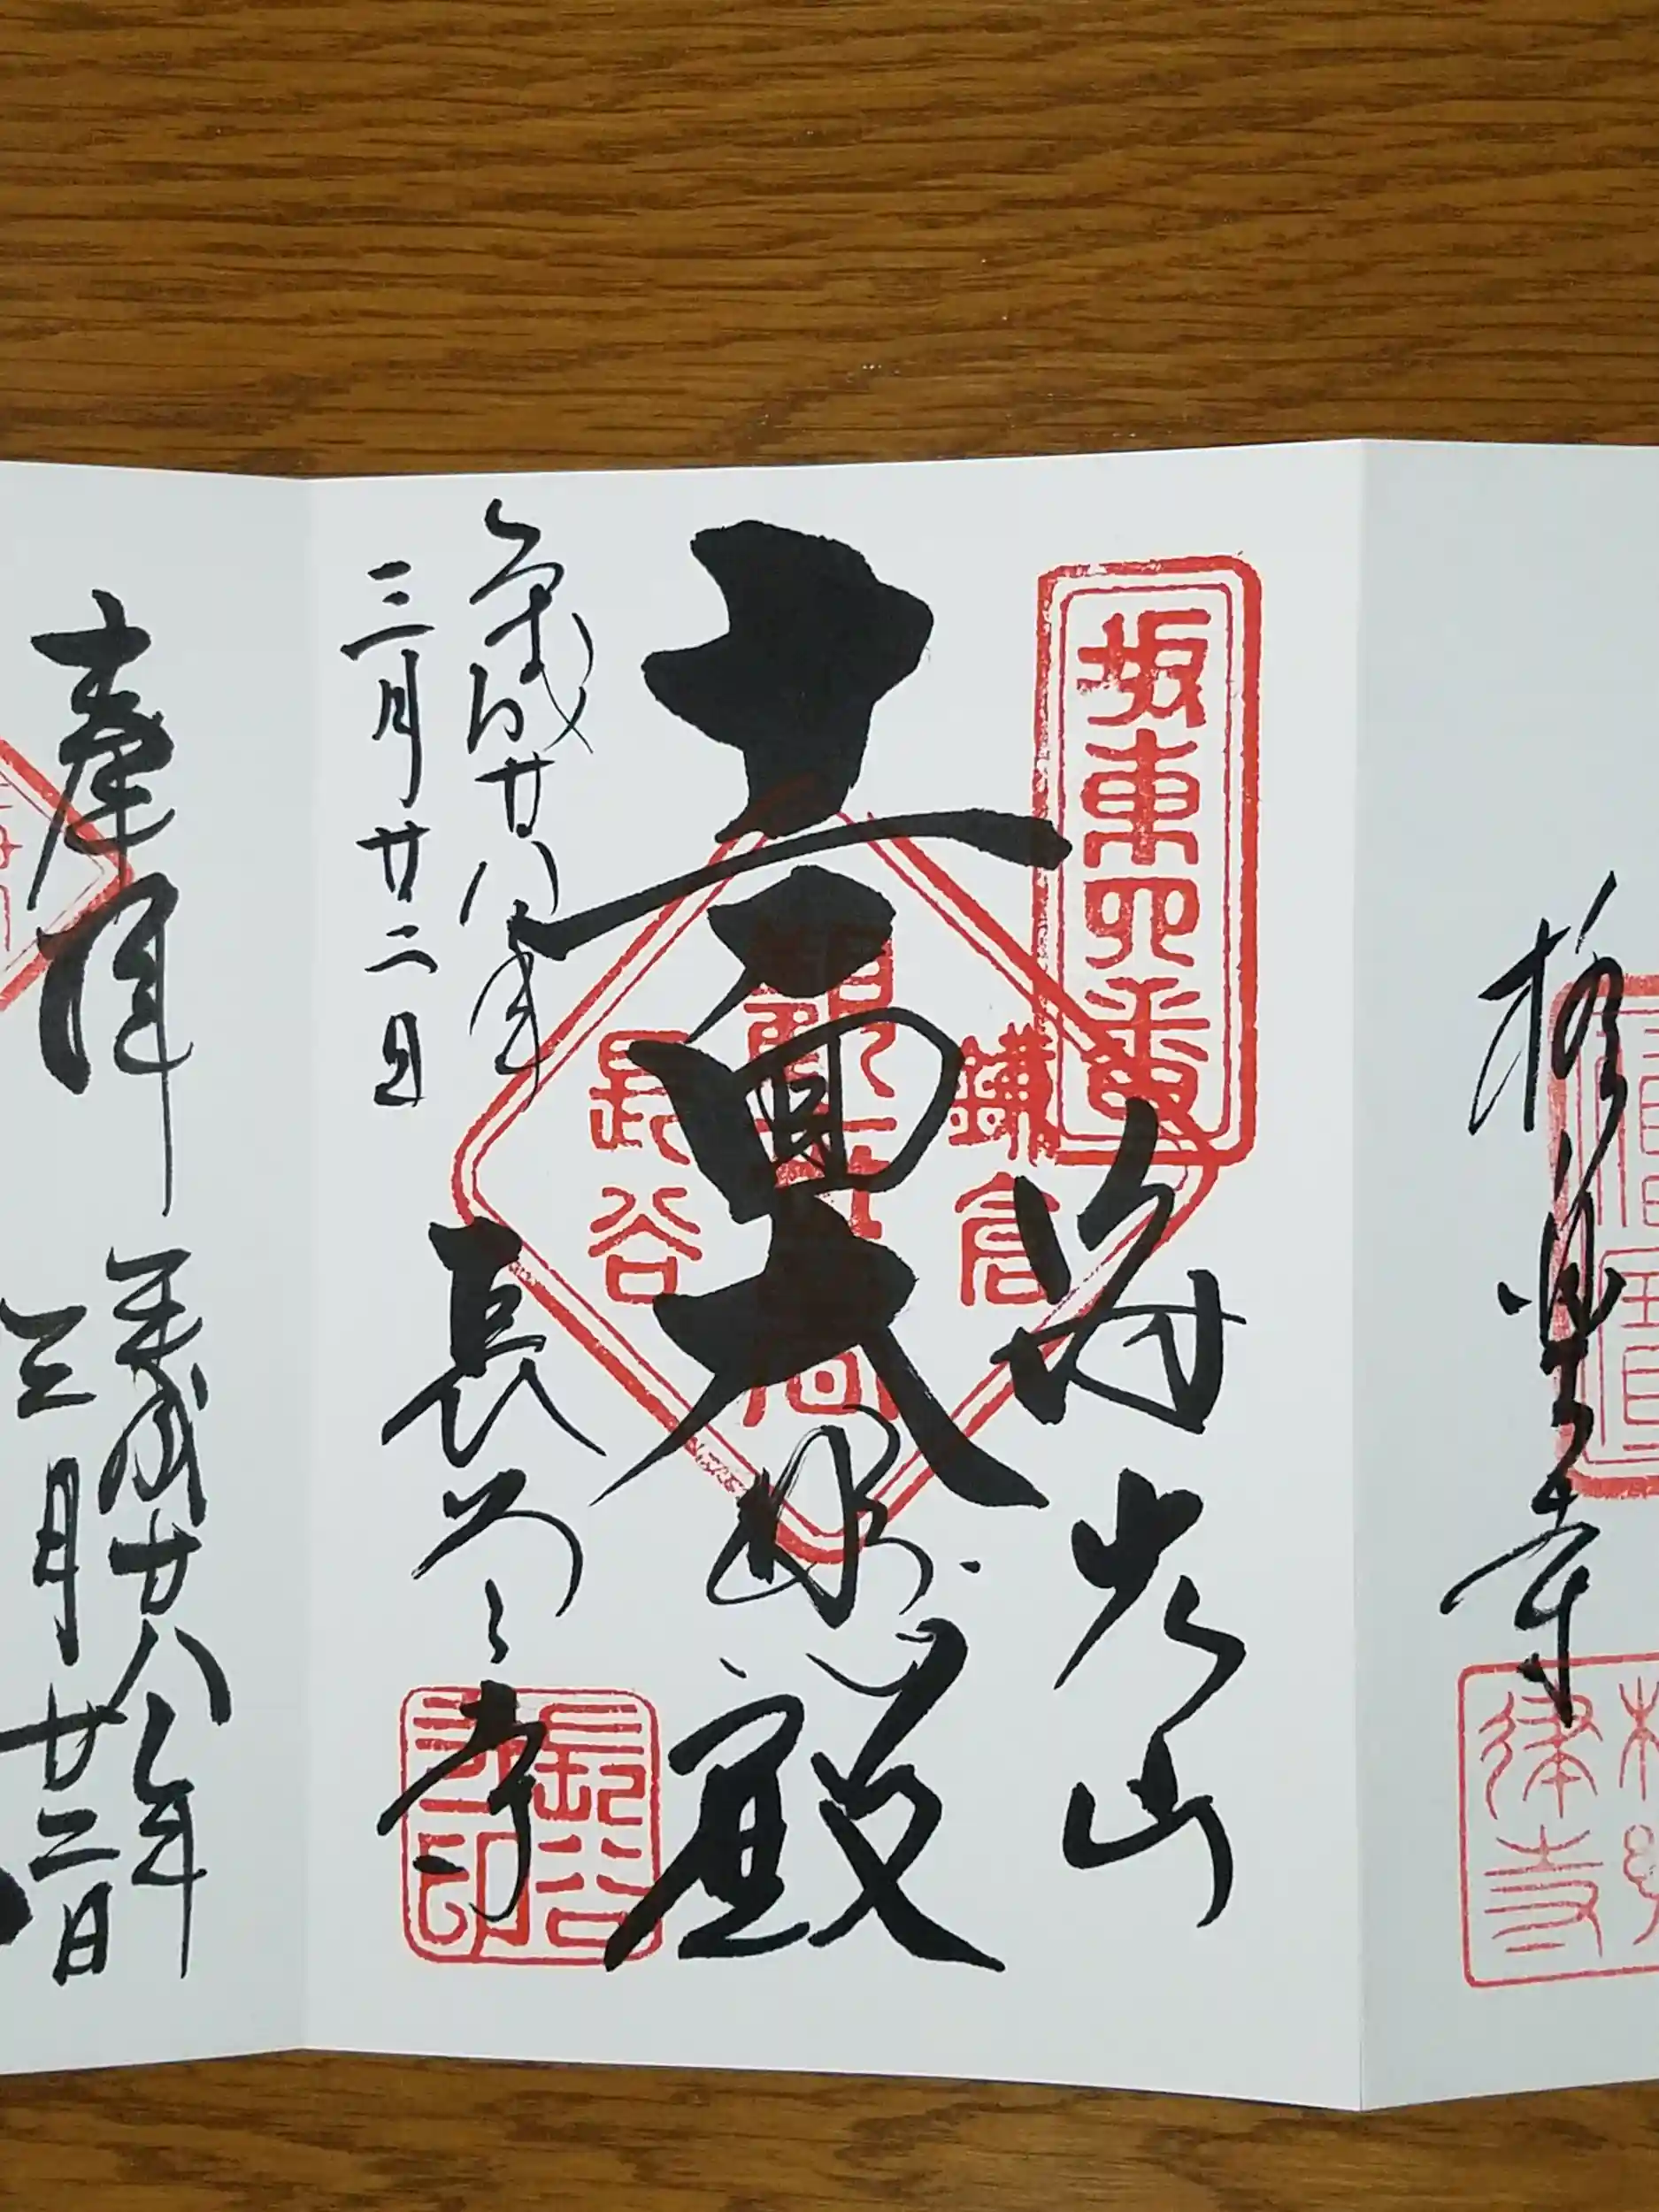 極楽寺
律寺
坂東四番
海光山
鎌倉
十一面大悲殿
長谷
平成廿八年
三月廿二日
長谷寺
長谷
寺印
奉拝
平成廿八年
三月廿二日